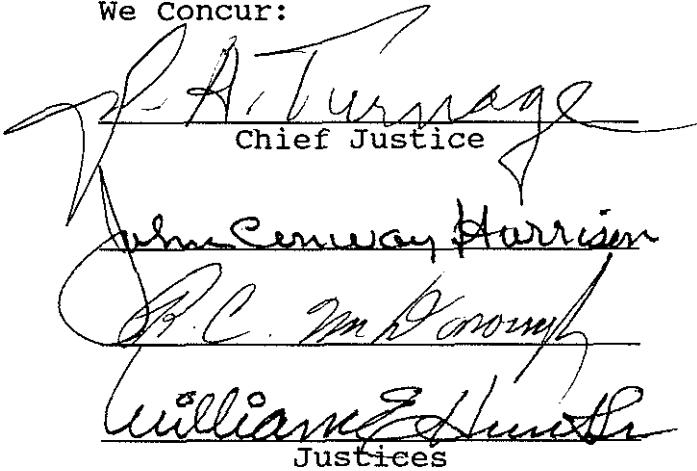 We Concur:
J. A. Turnage
Chief Justice
John Conway Harrison
R. C. McDonough
William E Hunt Sr
Justices